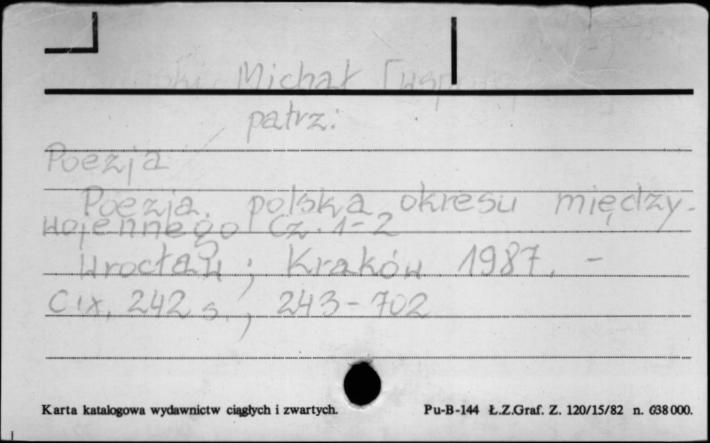 Michał
patrz:
Poezja
Poezja polska okresu między-
wojennego Cz. 1-2
Wrocław ; Kraków 1987. -
CIX, 242 s., 243-702
Karta katalogowa wydawnictw ciągłych i zwartych.
Pu-B-144 Ł.Z.Graf. Z. 120/15/82 n. 638 000.